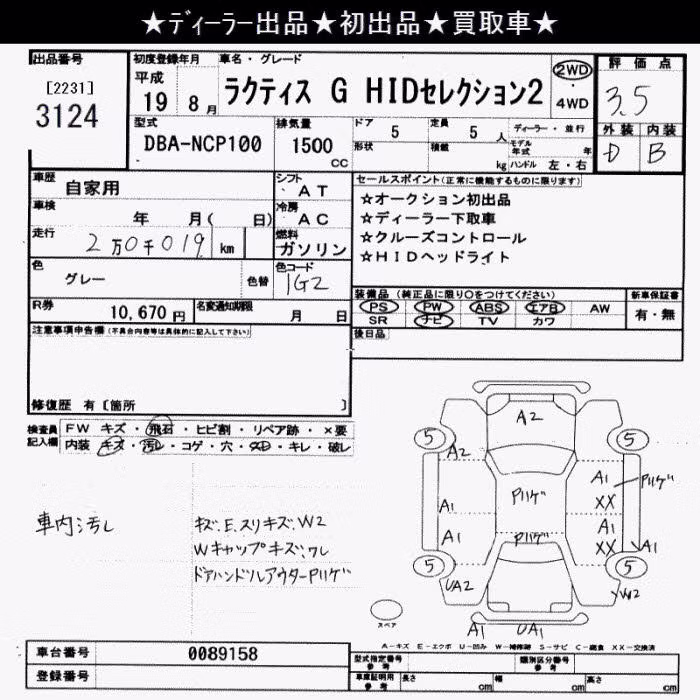 ★ディーラー出品★初出品★買取車★
出品番号
[2231]
3124
初度登録年月
平成
19 8月
車名・グレード
ラクティス G HIDセレクション2
2WD
・
4WD
評価点
3.5
外装 内装
D B
型式
DBA-NCP100
排気量
1500
cc
ドア 5
形状
定員 5 人
積載 kg
ディーラー・並行
モデル年式 年
ハンドル 左・右
車歴
自家用
シフト
AT
車検
年 月( 日)
冷房
AC
走行
2万0千019 km
燃料
ガソリン
色
グレー
色替
色コード
1G2
R券
10,670円
名変通知期限
月 日
セールスポイント(正常に機能するものに限ります)
☆オークション初出品
☆ディーラー下取車
☆クルーズコントロール
☆HIDヘッドライト
装備品 (純正品に限り○をつけてください)
PS PW ABS エアB AW
SR ナビ TV カワ
新車保証書
有・無
後日品
注意事項申告欄(不具合内容等は具体的に記入して下さい)
修復歴 有〔箇所 〕
検査員記入欄
FW キズ・飛石・ヒビ割・リペア跡・×要
内装 キズ・汚レ・コゲ・穴・ヌレ・キレ・破レ
車内汚レ
キズ.E.スリキズ.W2
Wキャップキズ.ワレ
ドアハンドルアウターPハゲ
A2
5
5
A2
Pハゲ
A1
XX
Pハゲ
A1
A1
A1
XX
Pハゲ
A1
5
5
UA2
W2
A1
UA1
スペア
A-キズ E-エクボ U-凹み W-補修跡 S-サビ C-腐食 XX-交換済
車台番号
0089158
登録番号
型式指定番号
参考
類別区分番号
参考
車庫証明用
参考
長さ cm
幅 cm
高さ cm